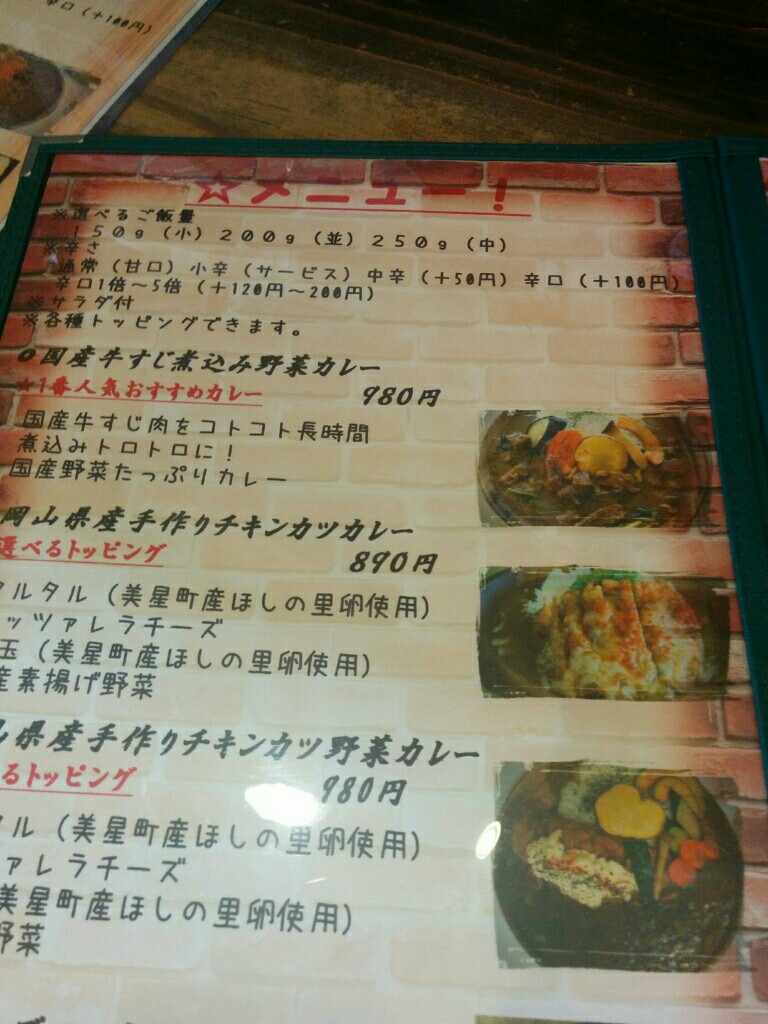 辛口（＋100円）
☆メニュー！
※選べるご飯量
150g（小）200g（並）250g（中）
※辛さ
通常（甘口）小辛（サービス）中辛（＋50円）辛口（＋100円）
辛口1倍～5倍（＋120円～200円）
※サラダ付
※各種トッピングできます。
○国産牛すじ煮込み野菜カレー
☆1番人気おすすめカレー 980円
国産牛すじ肉をコトコト長時間
煮込みトロトロに！
国産野菜たっぷりカレー
岡山県産手作りチキンカツカレー
選べるトッピング 890円
タルタル（美星町産ほしの里卵使用）
ッツァレラチーズ
玉（美星町産ほしの里卵使用）
産素揚げ野菜
山県産手作りチキンカツ野菜カレー
るトッピング 980円
タル（美星町産ほしの里卵使用）
ァレラチーズ
美星町産ほしの里卵使用）
野菜